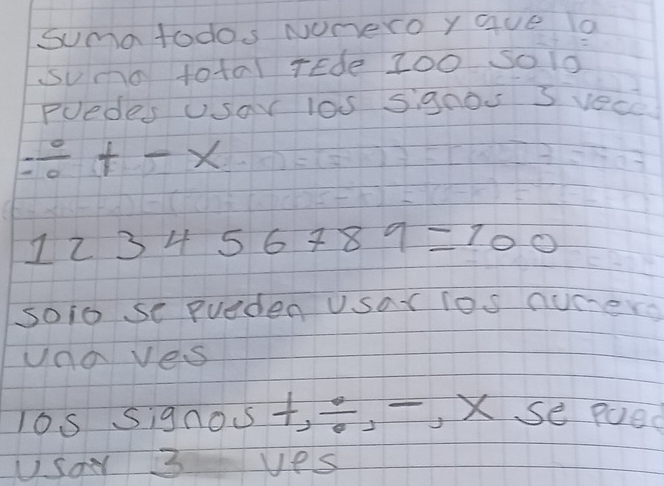 Suma todos Numero y que la
suma total TEde 100 solo
puedes usar los signos 3 vece
÷ + - x
1 2 3 4 5 6 7 8 9 = 100
solo se pueden usar los numero
una ves
los signos +, ÷, -, x se pued
usar 3 ves